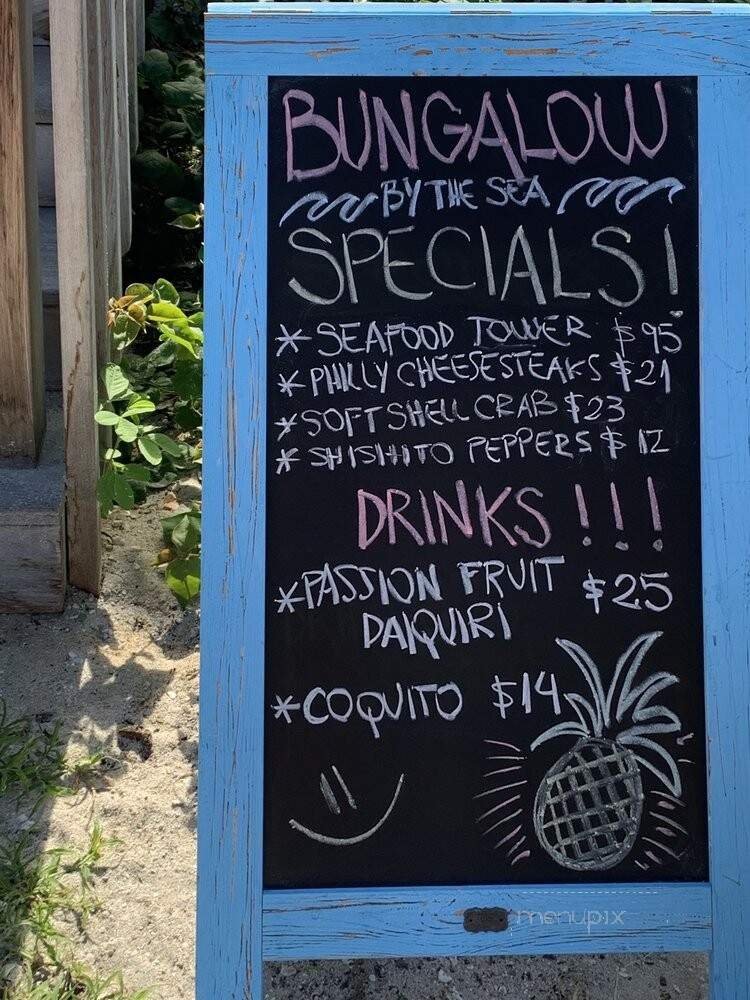 BUNGALOW
BY THE SEA
SPECIALS!
* SEAFOOD TOWER $95
* PHILLY CHEESESTEAKS $21
* SOFT SHELL CRAB $23
* SHISHITO PEPPERS $12
DRINKS!!!
* PASSION FRUIT $25
DAIQUIRI
* COQUITO $14
menupix